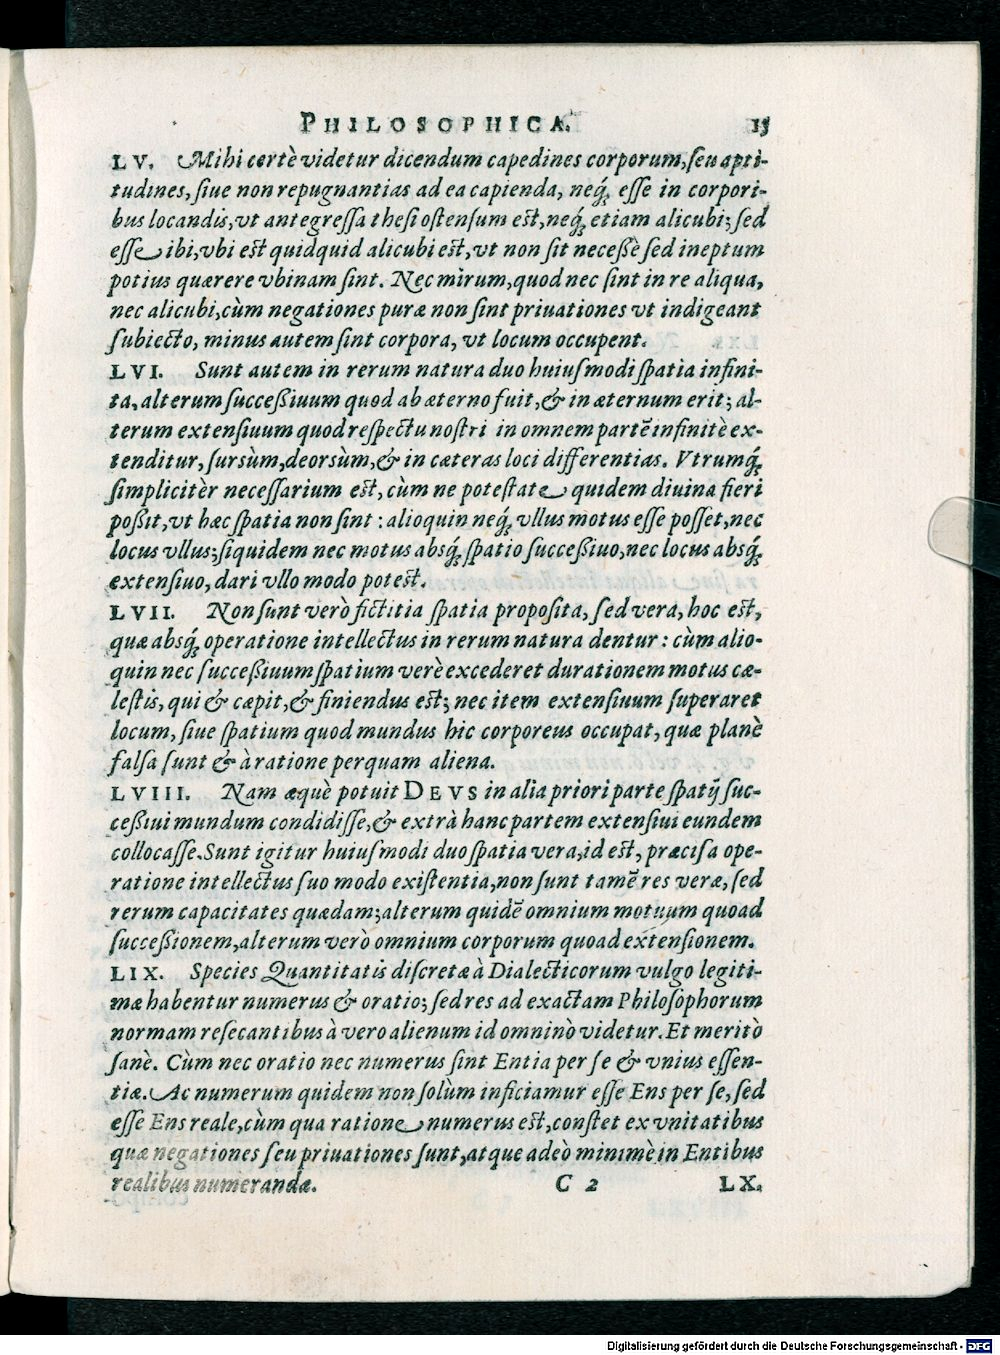 PHILOSOPHICA. 15
LV. Mihi certè videtur dicendum capedines corporum, seu apti-
tudines, siue non repugnantias ad ea capienda, neq́ esse in corpori-
bus locandis, vt antegressa thesi ostensum est, neq́ etiam alicubi; sed
esse ibi, vbi est quidquid alicubi est, vt non sit necessè sed ineptum
potius quærere vbinam sint. Nec mirum, quod nec sint in re aliqua,
nec alicubi, cùm negationes puræ non sint priuationes vt indigeant
subiecto, minus autem sint corpora, vt locum occupent.
LVI. Sunt autem in rerum natura duo huiusmodi spatia infini-
ta, alterum successiuum quod ab æterno fuit, & in æternum erit; al-
terum extensiuum quod respectu nostri in omnem partē infinitè ex-
tenditur, sursùm, deorsùm, & in cæteras loci differentias. Vtrumq́
simplicitèr necessarium est, cùm ne potestate quidem diuina fieri
possit, vt hæc spatia non sint: alioquin neq́ vllus motus esse posset, nec
locus vllus; siquidem nec motus absq́ spatio successiuo, nec locus absq́
extensiuo, dari vllo modo potest.
LVII. Non sunt verò fictitia spatia proposita, sed vera, hoc est,
quæ absq́ operatione intellectus in rerum natura dentur: cùm alio-
quin nec successiuum spatium verè excederet durationem motus cæ-
lestis, qui & cæpit, & finiendus est; nec item extensiuum superaret
locum, siue spatium quod mundus hic corporeus occupat, quæ planè
falsa sunt & à ratione perquam aliena.
LVIII. Nam æquè potuit DEVS in alia priori parte spatij suc-
cessiui mundum condidisse, & extrà hanc partem extensiui eundem
collocasse. Sunt igitur huiusmodi duo spatia vera, id est, præcisa ope-
ratione intellectus suo modo existentia, non sunt tamē res veræ, sed
rerum capacitates quædam; alterum quidē omnium motuum quoad
successionem, alterum verò omnium corporum quoad extensionem.
LIX. Species Quantitatis discretæ à Dialecticorum vulgo legiti-
mæ habentur numerus & oratio; sed res ad exactam Philosophorum
normam resecantibus à vero alienum id omninò videtur. Et meritò
sanè. Cùm nec oratio nec numerus sint Entia per se & vnius essen-
tiæ. Ac numerum quidem non solùm inficiamur esse Ens per se, sed
esse Ens reale, cùm qua ratione numerus est, constet ex vnitatibus
quæ negationes seu priuationes sunt, atque adeò minimè in Entibus
realibus numerandæ. C 2 LX.
Digitalisierung gefördert durch die Deutsche Forschungsgemeinschaft - DFG